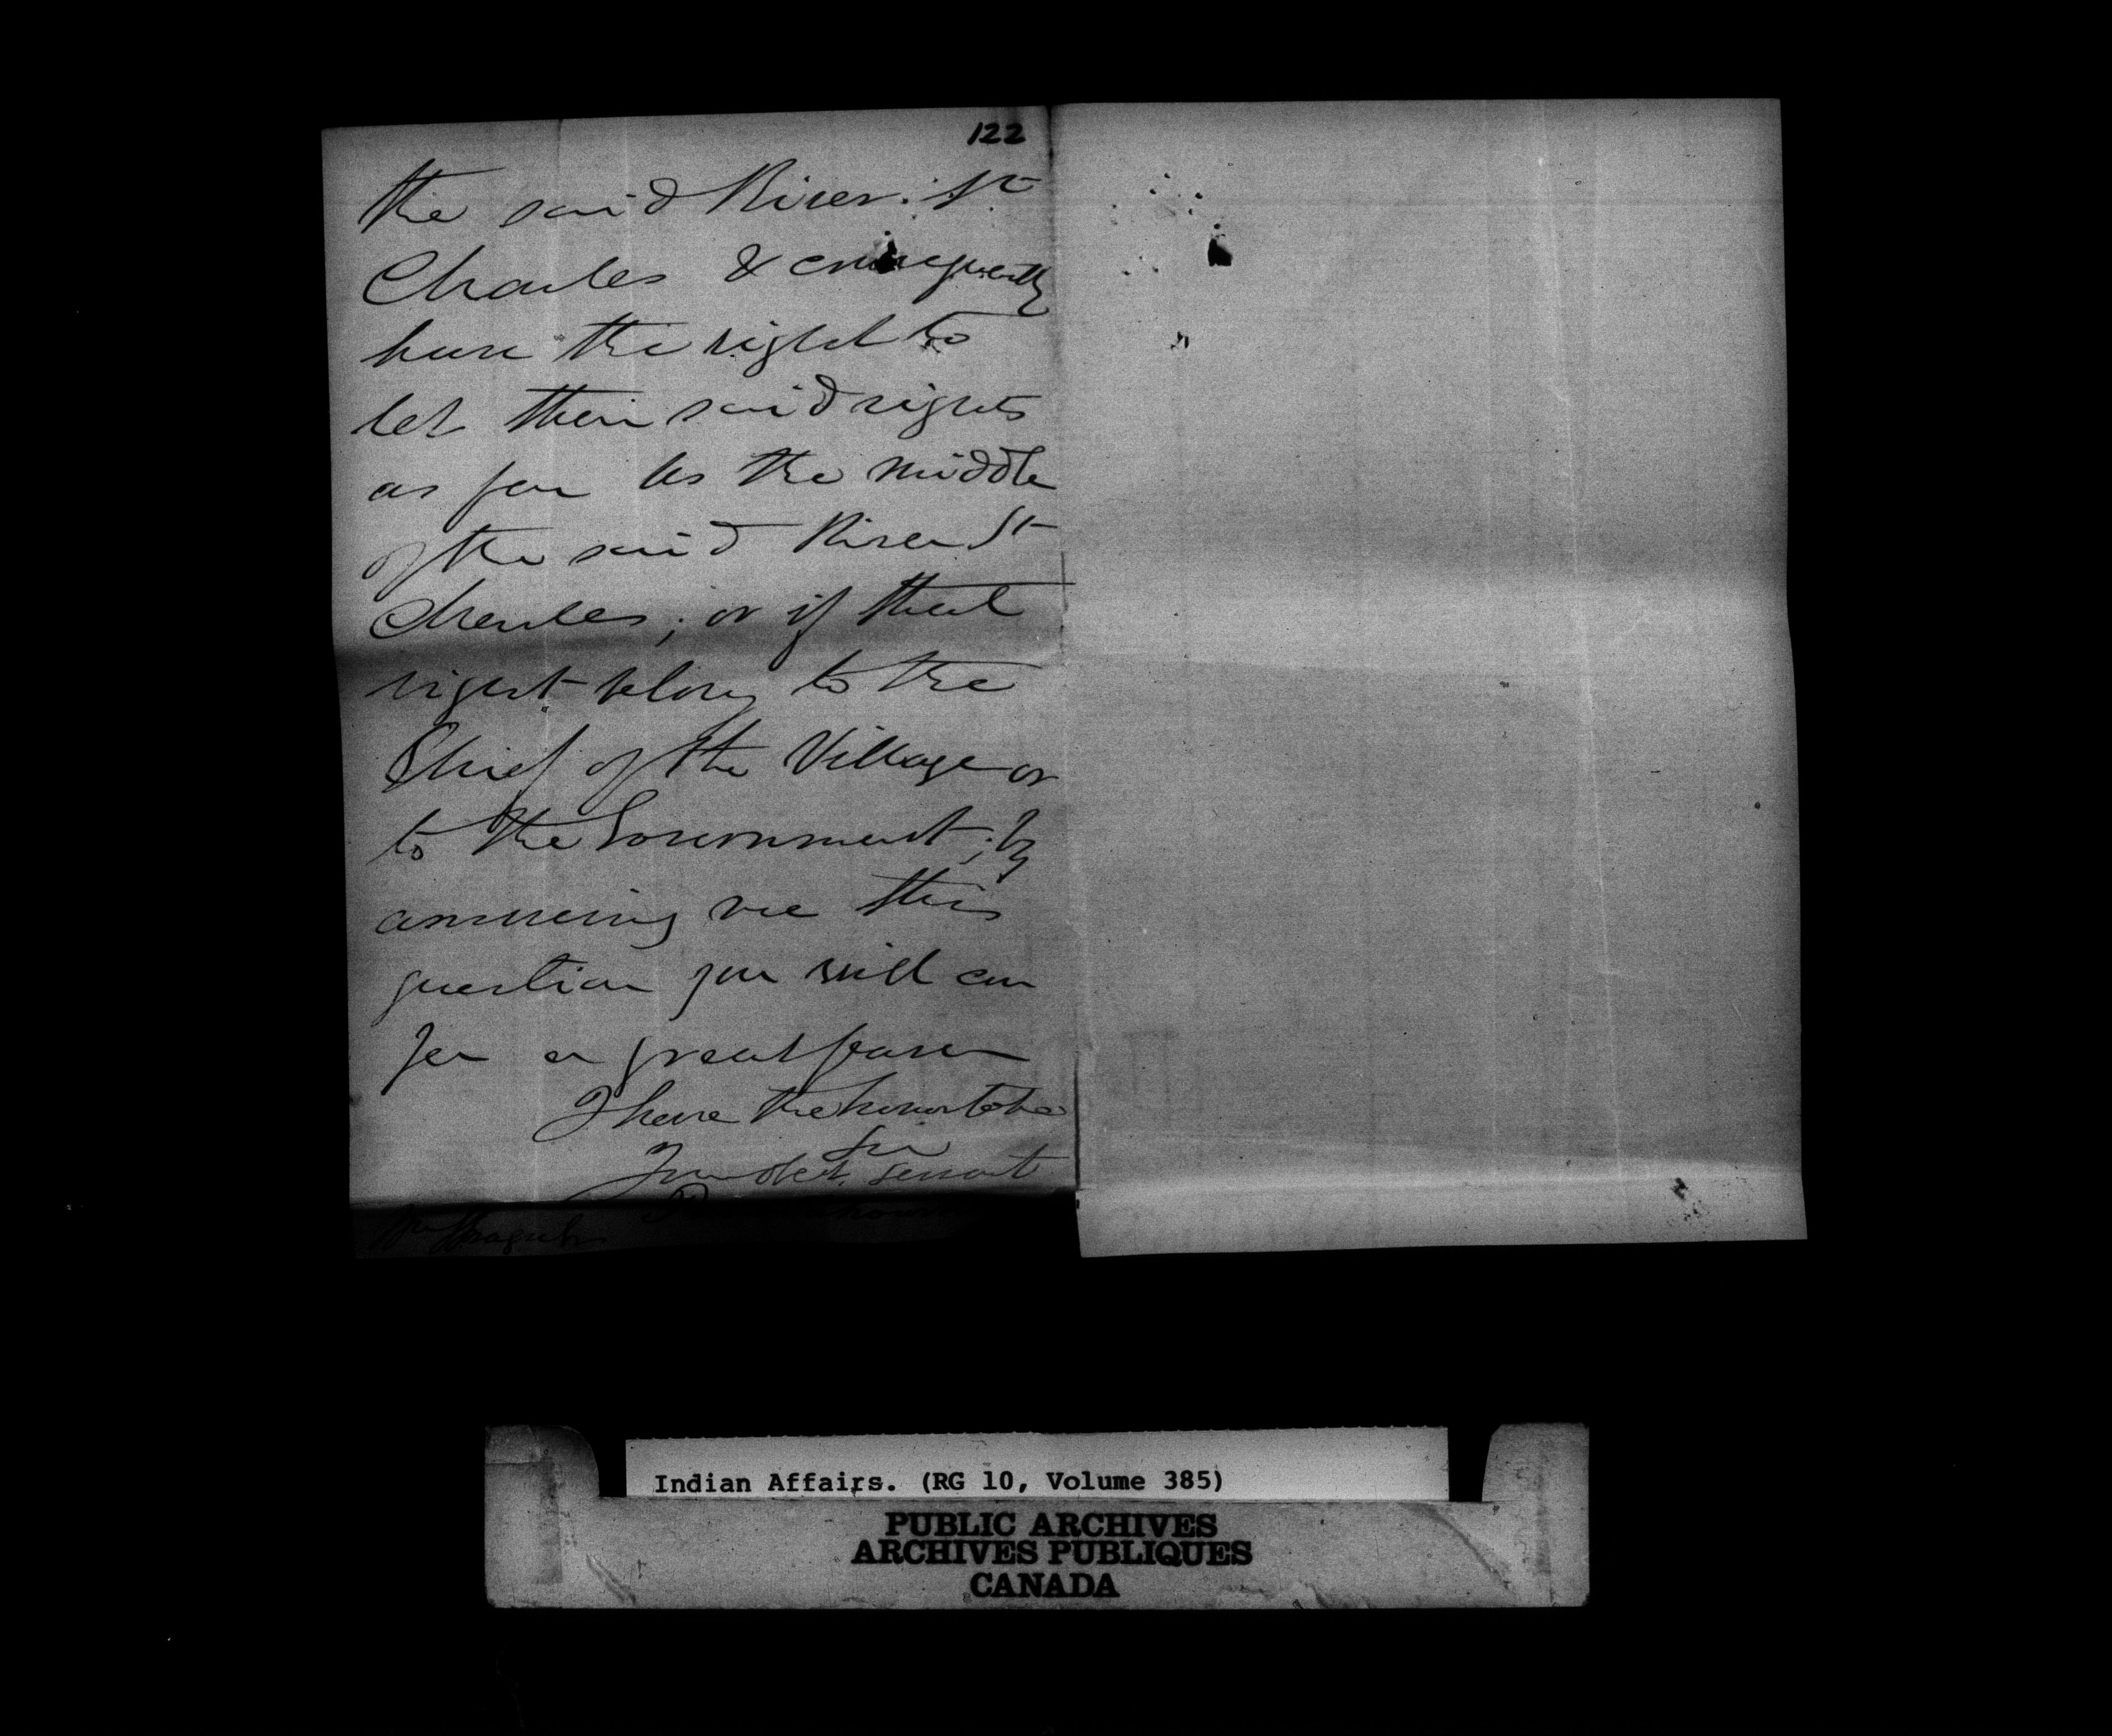 122
the said River St
Charles & consequently
have the right to
let their said rights
as far as the middle
of the said River St
Charles; or if that
right belong to the
Chief of the Village or
to the Government; by
answering me this
question you will con
fer a great favor
I have the honor to be
Sir
Your obdt. servant
Mr Spragge
Indian Affairs. (RG 10, Volume 385)
PUBLIC ARCHIVES
ARCHIVES PUBLIQUES
CANADA